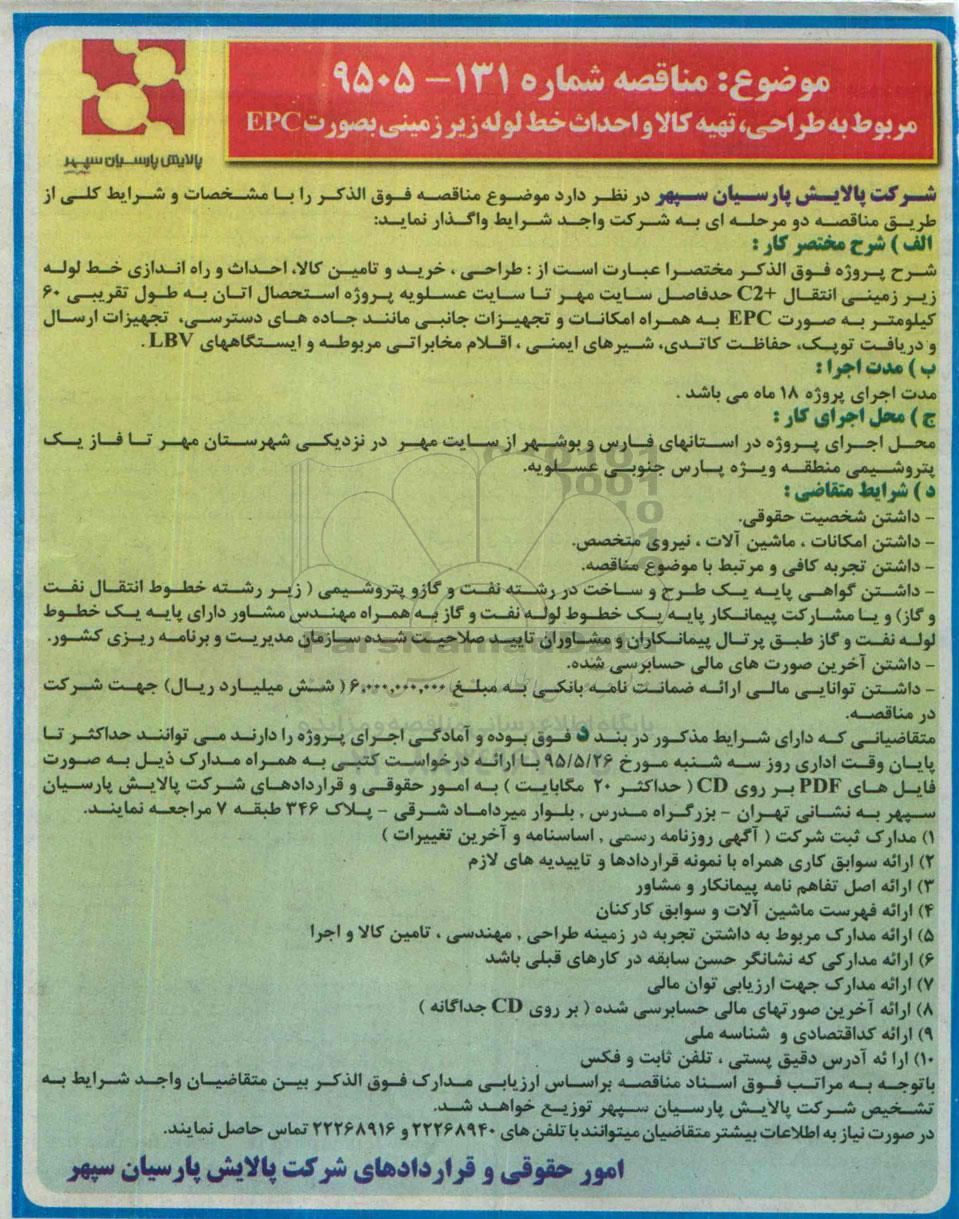 موضوع: مناقصه شماره ۱۳۱- ۹۵۰۵
مربوط به طراحی، تهیه کالا و احداث خط لوله زیر زمینی بصورت EPC
پالایش پارسیان سپهر
شرکت پالایش پارسیان سپهر در نظر دارد موضوع مناقصه فوق الذکر را با مشخصات و شرایط کلی از
طریق مناقصه دو مرحله ای به شرکت واجد شرایط واگذار نماید:
الف ) شرح مختصر کار :
شرح پروژه فوق الذکر مختصرا عبارت است از : طراحی ، خرید و تامین کالا، احداث و راه اندازی خط لوله
زیر زمینی انتقال C2+ حدفاصل سایت مهر تا سایت عسلویه پروژه استحصال اتان به طول تقریبی ۶۰
کیلومتر به صورت EPC به همراه امکانات و تجهیزات جانبی مانند جاده های دسترسی، تجهیزات ارسال
و دریافت توپک، حفاظت کاتدی، شیرهای ایمنی ، اقلام مخابراتی مربوطه و ایستگاههای LBV .
ب ) مدت اجرا :
مدت اجرای پروژه ۱۸ ماه می باشد .
ج ) محل اجرای کار :
محل اجرای پروژه در استانهای فارس و بوشهر از سایت مهر در نزدیکی شهرستان مهر تا فاز یک
پتروشیمی منطقه ویژه پارس جنوبی عسلویه.
د ) شرایط متقاضی :
- داشتن شخصیت حقوقی.
- داشتن امکانات ، ماشین آلات ، نیروی متخصص.
- داشتن تجربه کافی و مرتبط با موضوع مناقصه.
- داشتن گواهی پایه یک طرح و ساخت در رشته نفت و گازو پتروشیمی ( زیر رشته خطوط انتقال نفت
و گاز) و یا مشارکت پیمانکار پایه یک خطوط لوله نفت و گاز به همراه مهندس مشاور دارای پایه یک خطوط
لوله نفت و گاز طبق پرتال پیمانکاران و مشاوران تایید صلاحیت شده سازمان مدیریت و برنامه ریزی کشور.
- داشتن آخرین صورت های مالی حسابرسی شده.
- داشتن توانایی مالی ارائه ضمانت نامه بانکی به مبلغ ۶,۰۰۰,۰۰۰,۰۰۰ ( شش میلیارد ریال) جهت شرکت
در مناقصه.
متقاضیانی که دارای شرایط مذکور در بند د فوق بوده و آمادگی اجرای پروژه را دارند می توانند حداکثر تا
پایان وقت اداری روز سه شنبه مورخ ۹۵/۵/۲۶ با ارائه درخواست کتبی به همراه مدارک ذیل به صورت
فایل های PDF بر روی CD ( حداکثر ۲۰ مگابایت ) به امور حقوقی و قراردادهای شرکت پالایش پارسیان
سپهر به نشانی تهران - بزرگراه مدرس , بلوار میرداماد شرقی - پلاک ۳۴۶ طبقه ۷ مراجعه نمایند.
۱) مدارک ثبت شرکت ( آگهی روزنامه رسمی , اساسنامه و آخرین تغییرات )
۲) ارائه سوابق کاری همراه با نمونه قراردادها و تاییدیه های لازم
۳) ارائه اصل تفاهم نامه پیمانکار و مشاور
۴) ارائه فهرست ماشین آلات و سوابق کارکنان
۵) ارائه مدارک مربوط به داشتن تجربه در زمینه طراحی , مهندسی ، تامین کالا و اجرا
۶) ارائه مدارکی که نشانگر حسن سابقه در کارهای قبلی باشد
۷) ارائه مدارک جهت ارزیابی توان مالی
۸) ارائه آخرین صورتهای مالی حسابرسی شده ( بر روی CD جداگانه )
۹) ارائه کداقتصادی و شناسه ملی
۱۰) ارا ئه آدرس دقیق پستی ، تلفن ثابت و فکس
باتوجه به مراتب فوق اسناد مناقصه براساس ارزیابی مدارک فوق الذکر بین متقاضیان واجد شرایط به
تشخیص شرکت پالایش پارسیان سپهر توزیع خواهد شد.
در صورت نیاز به اطلاعات بیشتر متقاضیان میتوانند با تلفن های ۲۲۲۶۸۹۴۰ و ۲۲۲۶۸۹۱۶ تماس حاصل نمایند.
امور حقوقی و قراردادهای شرکت پالایش پارسیان سپهر